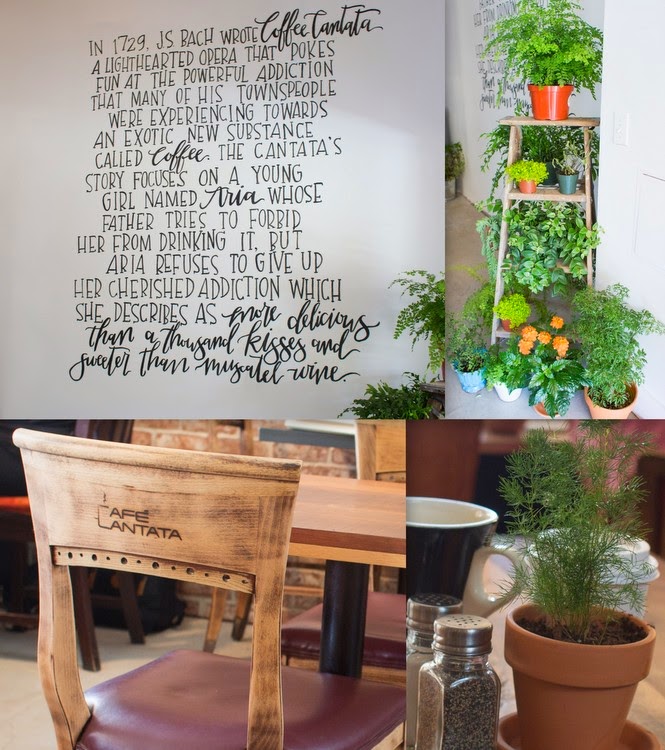 IN 1729, JS BACH WROTE Coffee Cantata
A LIGHTHEARTED OPERA THAT POKES
FUN AT THE POWERFUL ADDICTION
THAT MANY OF HIS TOWNSPEOPLE
WERE EXPERIENCING TOWARDS
AN EXOTIC NEW SUBSTANCE
CALLED Coffee. THE CANTATA'S
STORY FOCUSES ON A YOUNG
GIRL NAMED Aria WHOSE
FATHER TRIES TO FORBID
HER FROM DRINKING IT, BUT
ARIA REFUSES TO GIVE UP
HER CHERISHED ADDICTION WHICH
SHE DESCRIBES AS more delicious
than a thousand kisses and
sweeter than muscatel wine.
CAFÉ
CANTATA